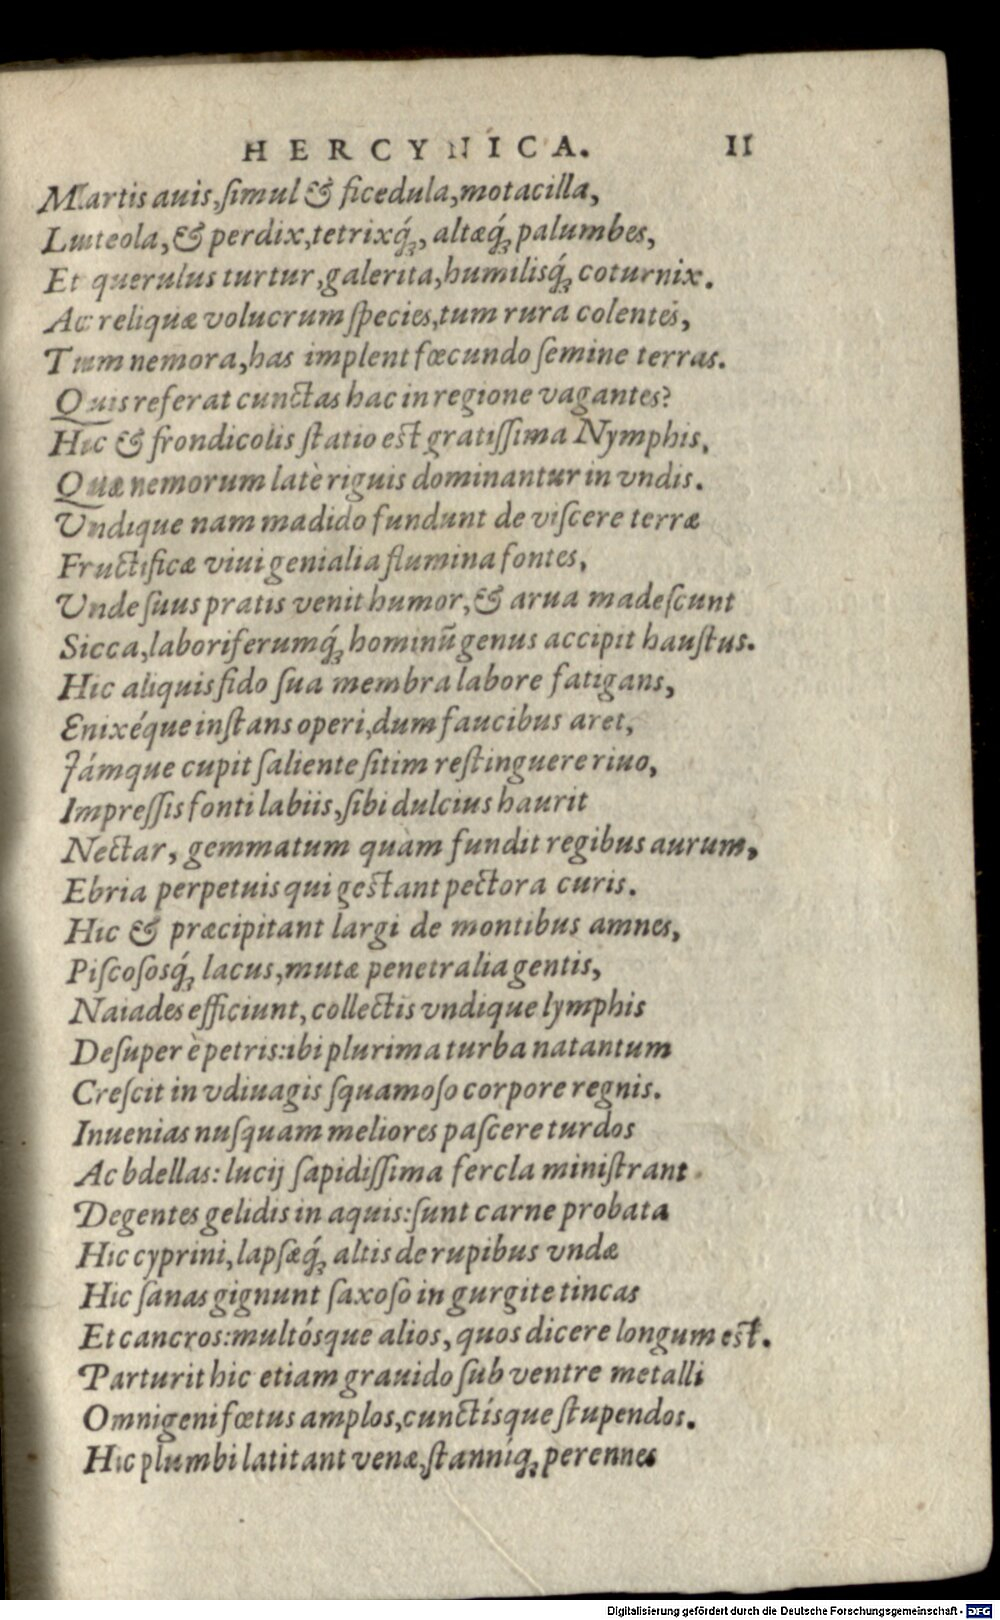 HERCYNICA. 11
Martis auis, ſimul & ficedula, motacilla,
Luteola, & perdix, tetrixq́ꝫ, altæq́ꝫ palumbes,
Et querulus turtur, galerita, humilisq́ꝫ coturnix.
Ac reliquæ volucrum ſpecies, tum rura colentes,
Tum nemora, has implent fœcundo ſemine terras.
Quis referat cunctas hac in regione vagantes?
Hic & frondicolis ſtatio eſt gratiſſima Nymphis,
Quæ nemorum latè riguis dominantur in vndis.
Vndique nam madido fundunt de viſcere terræ
Fructificæ viui genialia flumina fontes,
Vnde ſuus pratis venit humor, & arua madeſcunt
Sicca, laboriferumq́ꝫ hominū genus accipit hauſtus.
Hic aliquis fido ſua membra labore fatigans,
Enixéque inſtans operi, dum faucibus aret,
Jámque cupit ſaliente ſitim reſtinguere riuo,
Impreſſis fonti labiis, ſibi dulcius haurit
Nectar, gemmatum quàm fundit regibus aurum,
Ebria perpetuis qui geſtant pectora curis.
Hic & præcipitant largi de montibus amnes,
Piſcoſosq́ꝫ lacus, mutæ penetralia gentis,
Naiades efficiunt, collectis vndique lymphis
Deſuper è petris: ibi plurima turba natantum
Creſcit in vdiuagis ſquamoſo corpore regnis.
Inuenias nuſquam meliores paſcere turdos
Ac bdellas: lucij ſapidiſſima fercla miniſtrant
Degentes gelidis in aquis: ſunt carne probata
Hic cyprini, lapſæq́ꝫ altis de rupibus vndæ
Hic ſanas gignunt ſaxoſo in gurgite tincas
Et cancros: multósque alios, quos dicere longum eſt.
Parturit hic etiam grauido ſub ventre metalli
Omnigeni fœtus amplos, cunctísque ſtupendos.
Hic plumbi latitant venæ, ſtanníqꝫ perennes
Digitalisierung gefördert durch die Deutsche Forschungsgemeinschaft - DFG